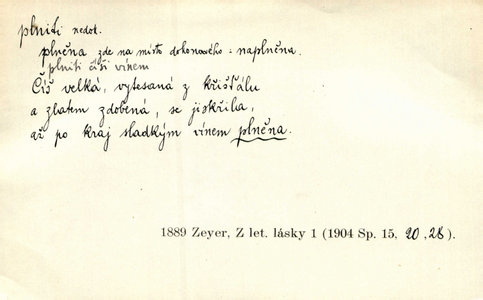 plniti nedok.
plněna zde na místo dokonavého: naplněna.
plniti číši vínem
Číš velká, vytesaná z křišťálu
a zlatem zdobená, se jiskřila,
až po kraj sladkým vínem plněna.
1889 Zeyer, Z let. lásky 1 (1904 Sp. 15, 20, 28).